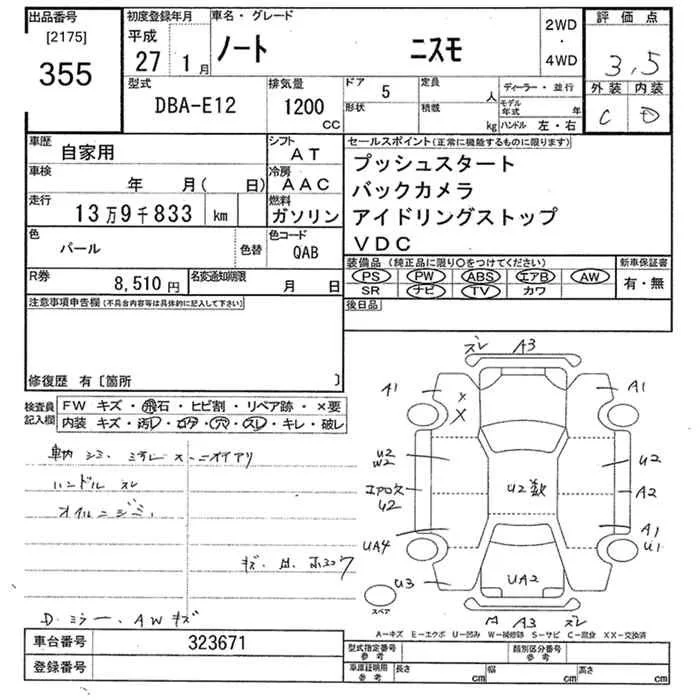 出品番号
[2175]
355
初度登録年月
平成
27 1月
車名・グレード
ノート ニスモ
2WD
・
4WD
評価点
3.5
外装 内装
C D
型式
DBA-E12
排気量
1200
CC
ドア 5
形状
定員 人
積載 kg
ディーラー・並行
モデル年式 年
ハンドル 左・右
車歴
自家用
シフト
AT
車検
年 月( 日)
冷房
AAC
走行
13万9千833 km
燃料
ガソリン
色
パール
色替
色コード
QAB
R券
8,510円
名変通知期限
月 日
セールスポイント(正常に機能するものに限ります)
プッシュスタート
バックカメラ
アイドリングストップ
VDC
装備品(純正品に限り○をつけてください)
PS PW ABS エアB AW
SR ナビ TV カワ
新車保証書
有・無
後日品
注意事項申告欄(不具合内容等は具体的に記入して下さい)
修復歴 有〔箇所 〕
検査員
記入欄
FW キズ・飛石・ヒビ割・リペア跡・×要
内装 キズ・汚レ・コゲ・穴・スレ・キレ・破レ
車内 シミ ヨゴレ ス ニオイアリ
ハンドル スレ
オイルニジミ
D.ミラー、AWキズ
ズレ A3
A1
X
X
A1
U2
W2
U2
エアロ欠
U2
U2数
A2
UA4
A1
U1
U3
UA2
A3 ズレ
スペア
A-キズ E-エクボ U-凹み W-補修跡 S-サビ C-腐食 XX-交換済
車台番号
323671
登録番号
型式指定番号
参考
類別区分番号
参考
車庫証明用
参考
長さ cm
幅 cm
高さ cm